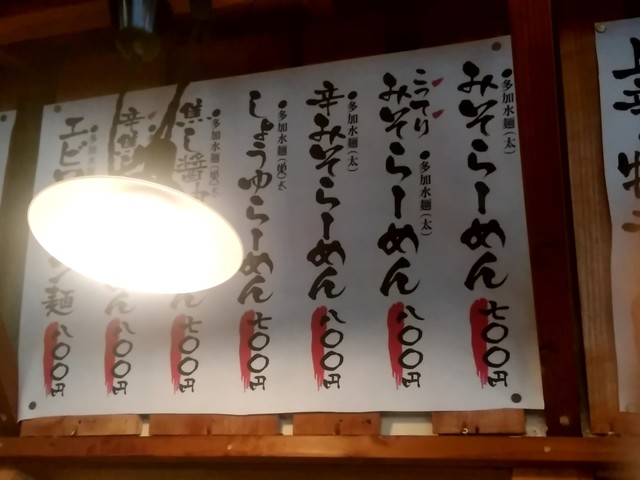 みそらーめん
●多加水麺(太)
七〇〇円
こってり
みそらーめん
●多加水麺(太)
八〇〇円
辛みそらーめん
●多加水麺(太)
八〇〇円
しょうゆらーめん
●多加水麺
七〇〇円
焦し醬
●多加水麺
ん
七〇〇円
辛
ん
八〇〇円
エビ
麺
八〇〇円